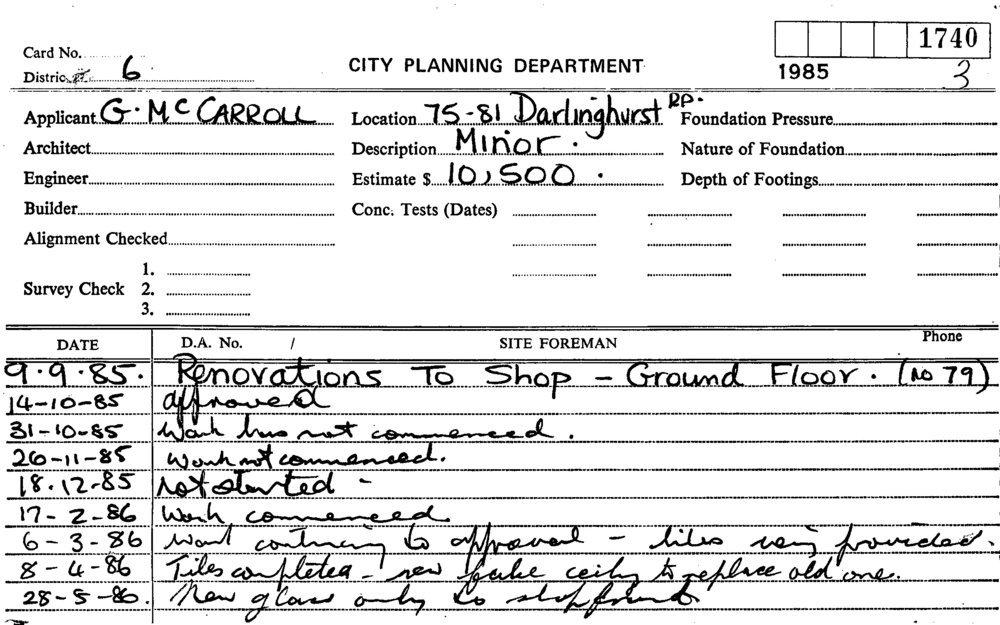 1740
Card No.
District 6
CITY PLANNING DEPARTMENT
1985 3
Applicant G. Mc CARROLL Location 75-81 Darlinghurst RD. Foundation Pressure
Architect Description Minor. Nature of Foundation
Engineer Estimate $ 10,500. Depth of Footings
Builder Conc. Tests (Dates)
Alignment Checked
1.
Survey Check 2.
3.
DATE D.A. No. / SITE FOREMAN Phone
9.9.85. Renovations To Shop - Ground Floor. (No 79)
14-10-85 approved
31-10-85 Work has not commenced.
26-11-85 Work not commenced.
18.12.85 Not started -
17-2-86 Work commenced.
6-3-86 Work continuing to approval - tiles being provided.
8-4-86 Tiles completed - new ceiling to replace old one.
28-5-86. New glass only to shopfront